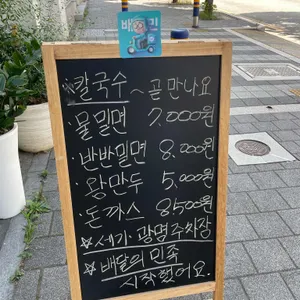 배민
·칼국수 ~ 곧만나요
·물밀면 7,000원
·반반밀면 8,000원
·왕만두 5,000원
·돈까스 8500원
☆세가 광명주차장
☆배달의 민족
시작했어요.